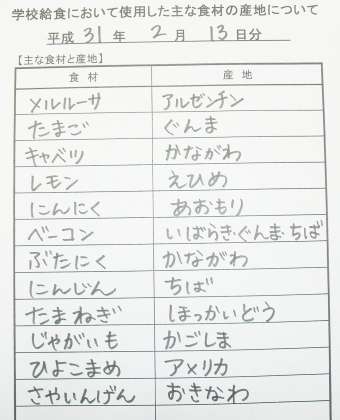 学校給食において使用した主な食材の産地について
平成 31 年 2 月 13 日分
【主な食材と産地】
食材 産地
メルルーサ アルゼンチン
たまご ぐんま
キャベツ かながわ
レモン えひめ
にんにく あおもり
ベーコン いばらき・ぐんま・ちば
ぶたにく かながわ
にんじん ちば
たまねぎ ほっかいどう
じゃがいも かごしま
ひよこまめ アメリカ
さやいんげん おきなわ